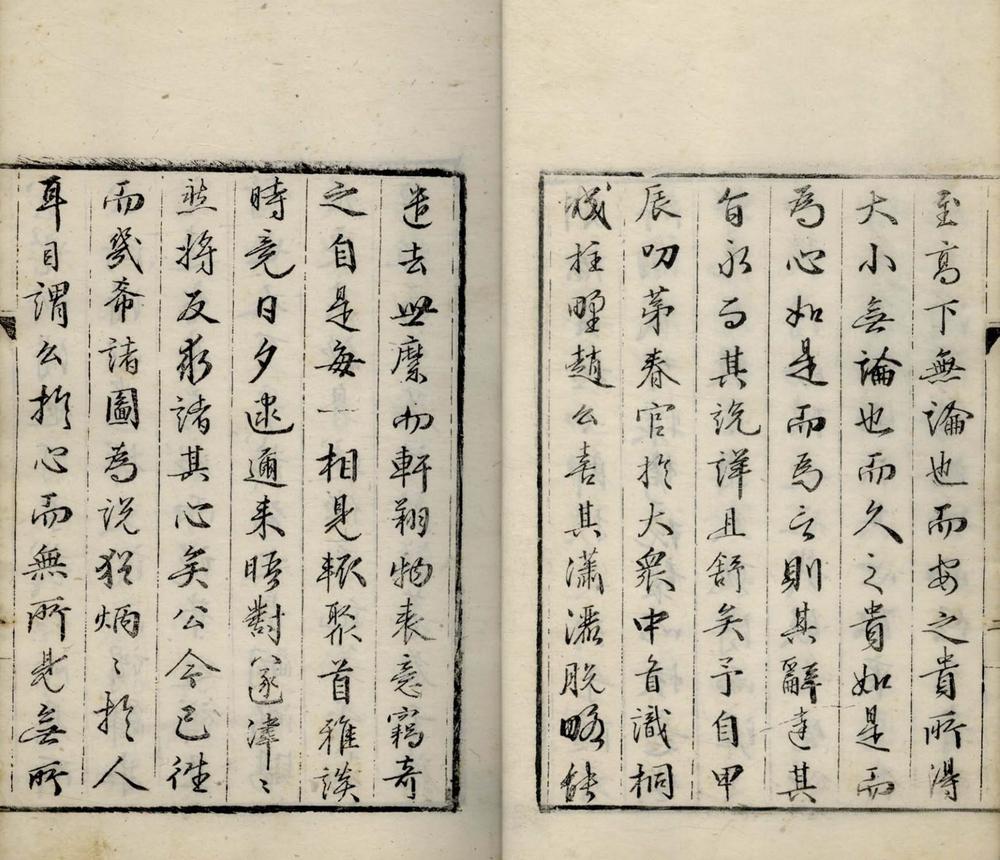 至高下無論也而安之貴所得
大小無論也而久之貴如是而
為心如是而為言則其辭達其
旨永而其說詳且舒矣予自甲
辰叨第春官於大衆中首識桐
城拄野趙公喜其瀟灑脫略能
遣去世塵而軒翔物表意竊奇
之自是每一相見輒聚首雅談
時竟日夕逮邇來晤對益津〻
然將反求諸其心矣公今已往
而幾希諸圖為說猶炳〻於人
耳目謂公於心而無所見無所